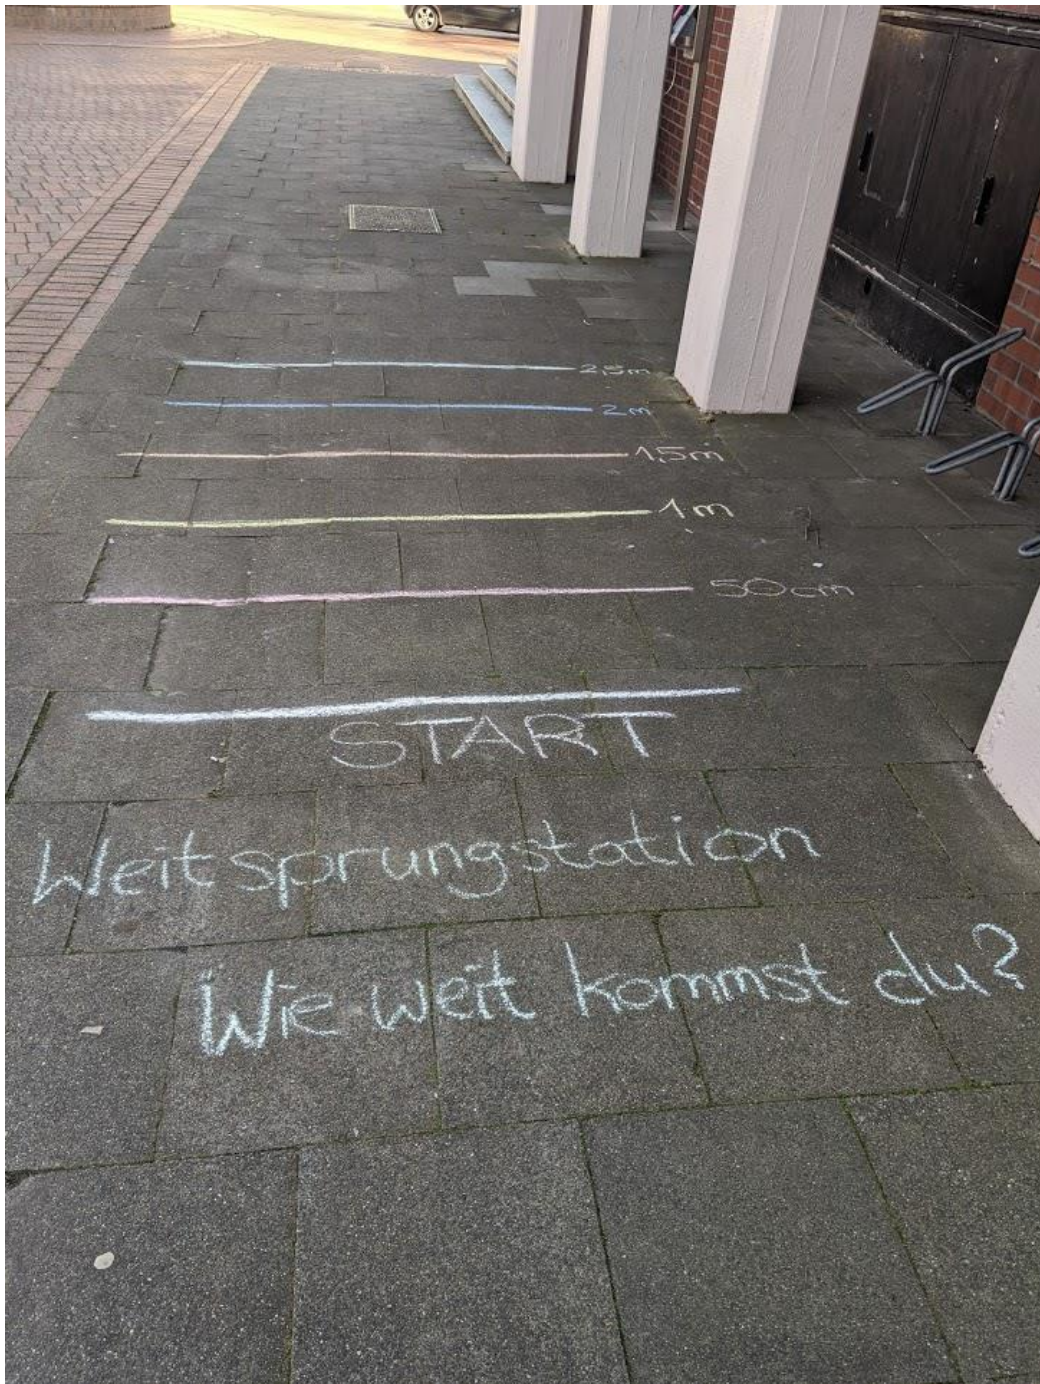 2,5m
2m
1,5m
1m
50cm
START
Weitsprungstation
Wie weit kommst du?